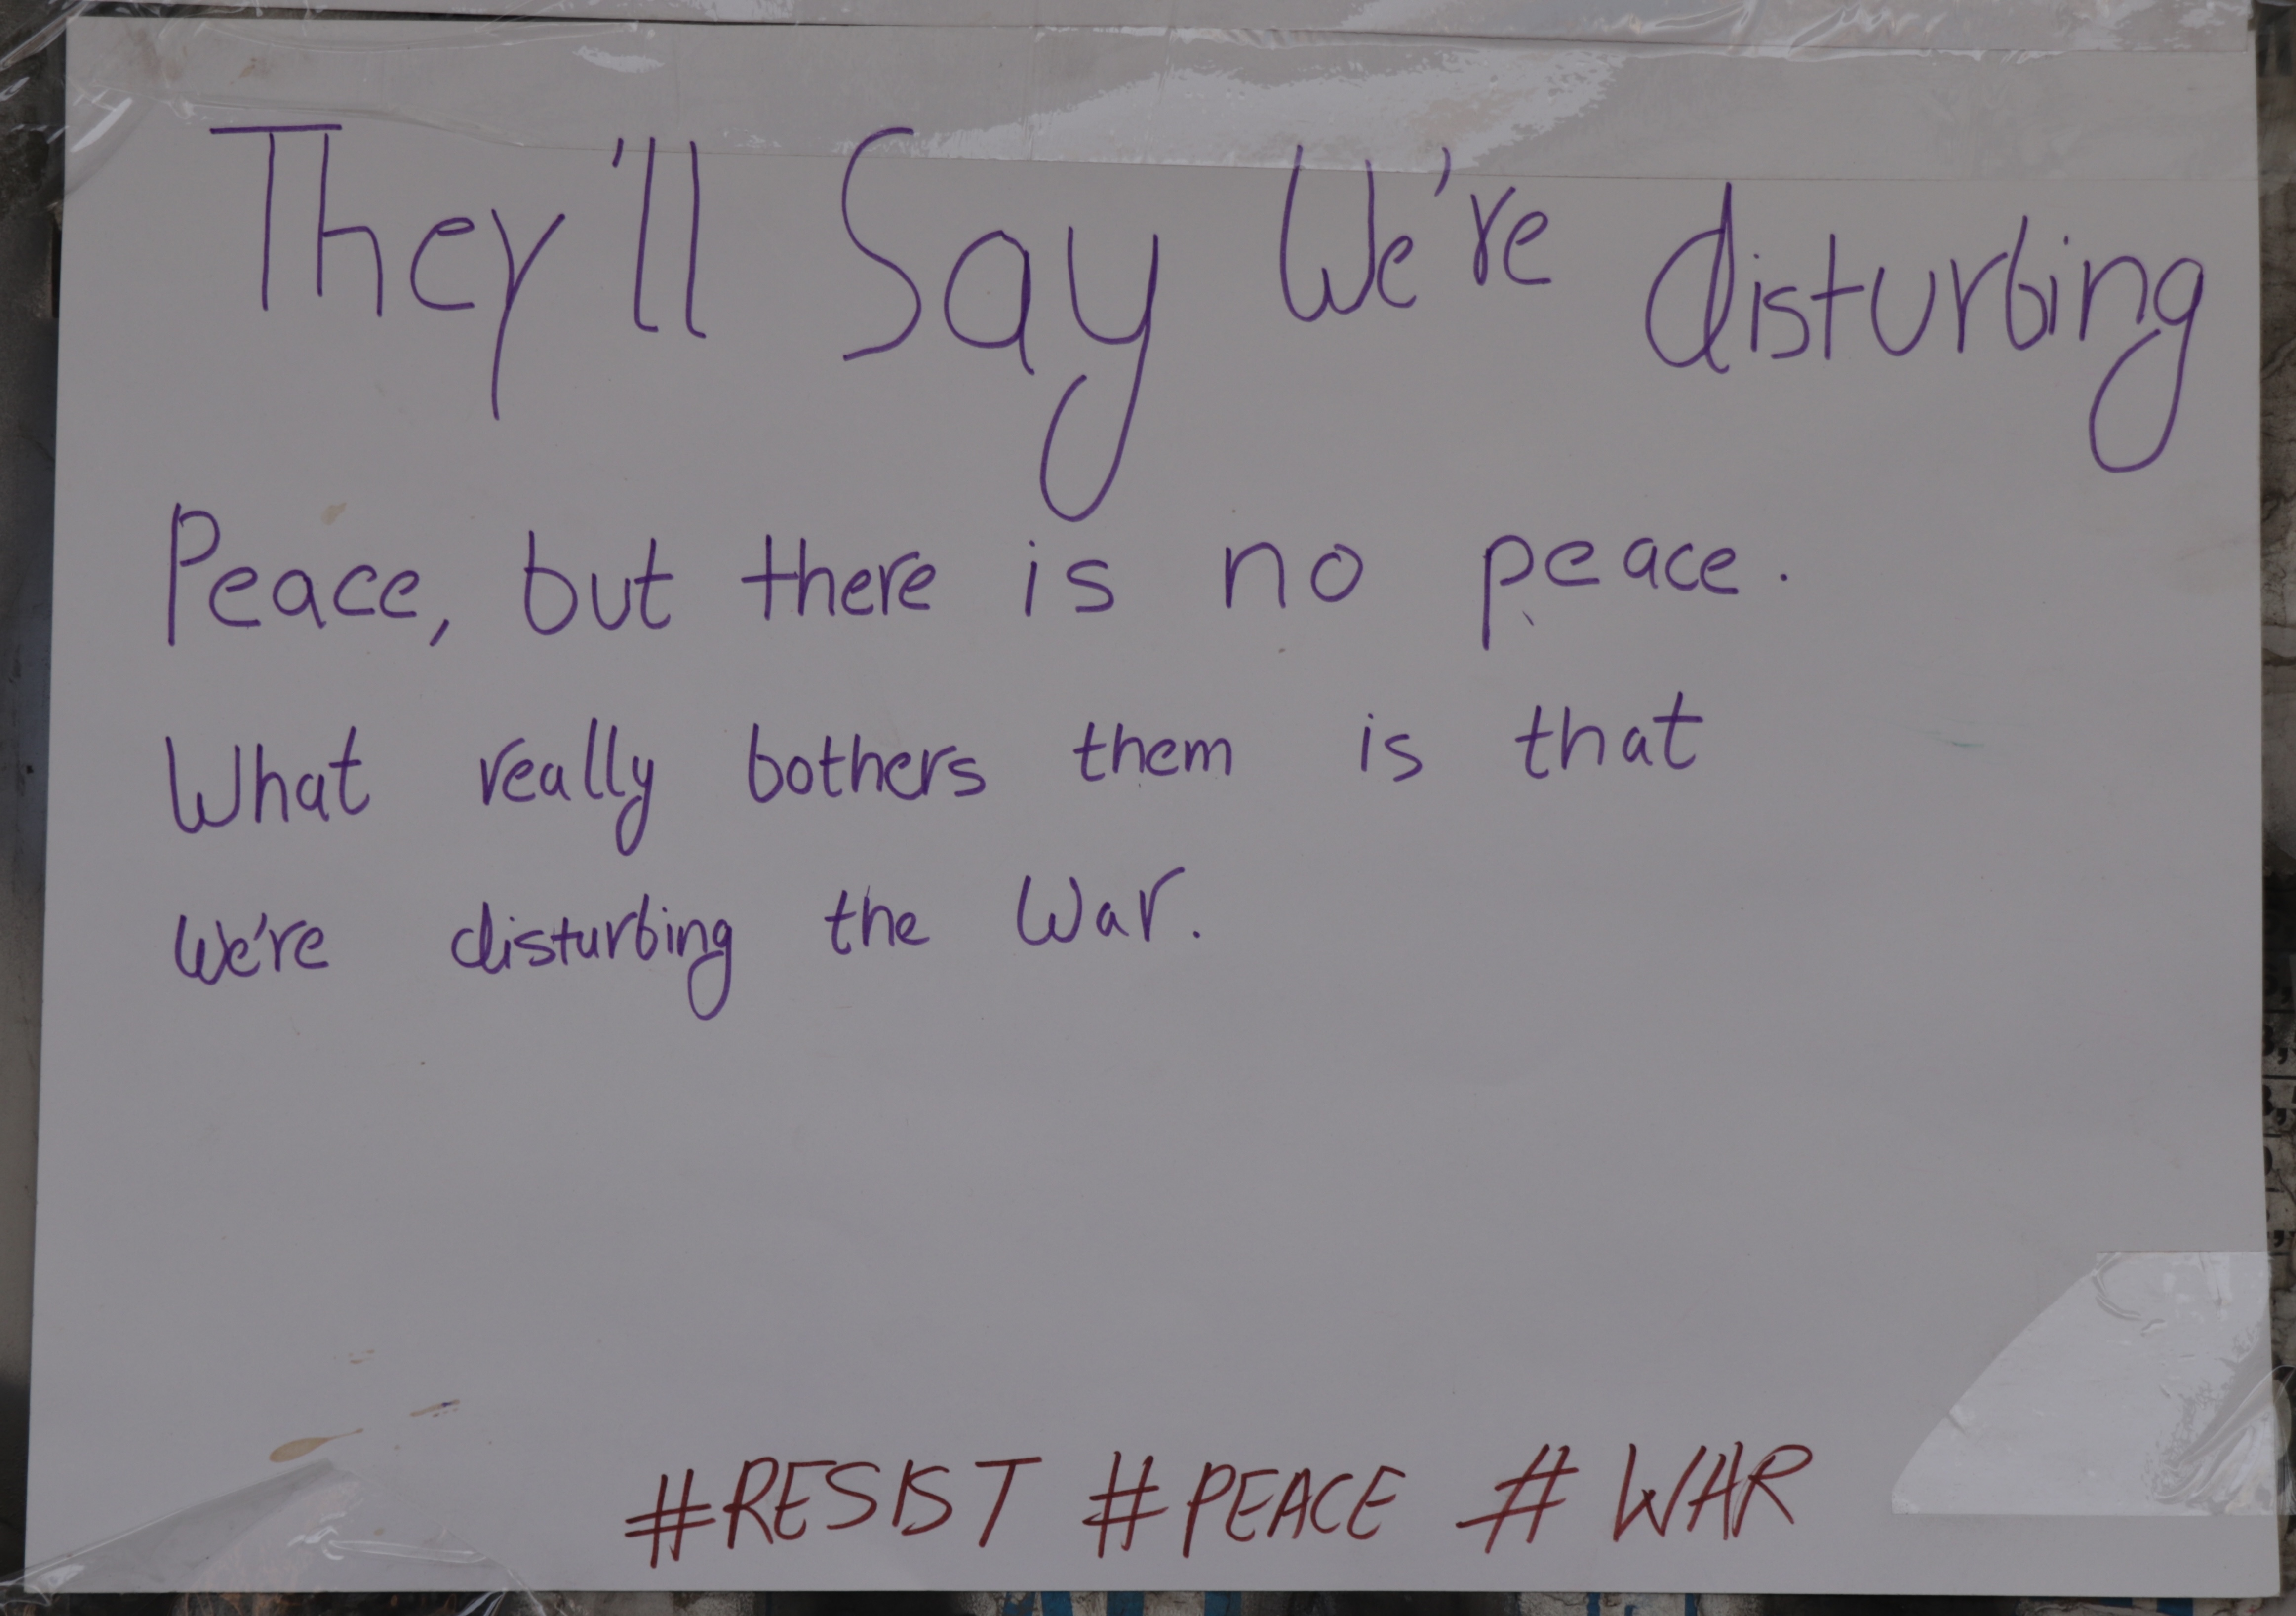 They'll Say We're disturbing
Peace, but there is no peace.
What really bothers them is that
We're disturbing the War.
#RESIST #PEACE # WAR